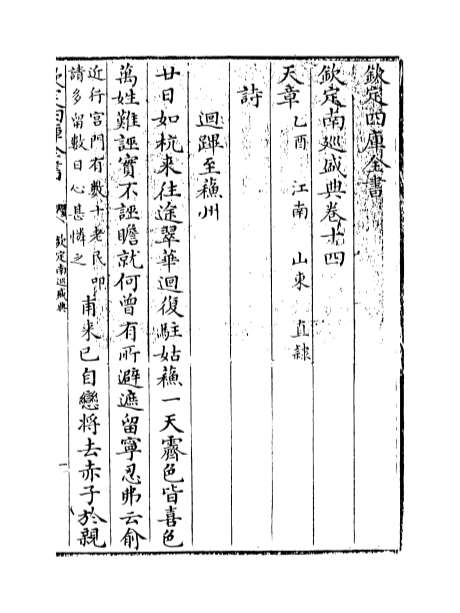 欽定四庫全書
欽定南巡盛典卷十四
天章乙酉 江南 山東 直隸
詩
迴蹕至蘓州
廿日如杭来往途翠華迴復駐姑蘓一天霽色皆喜色
萬姓難誣實不誣瞻就何曽有所避遮留寧忍弗云俞
近行宫門有數十老民叩
請多留數日心甚憐之
甫来已自戀将去赤子於親
欽定四庫全書
欽定南巡盛典
一